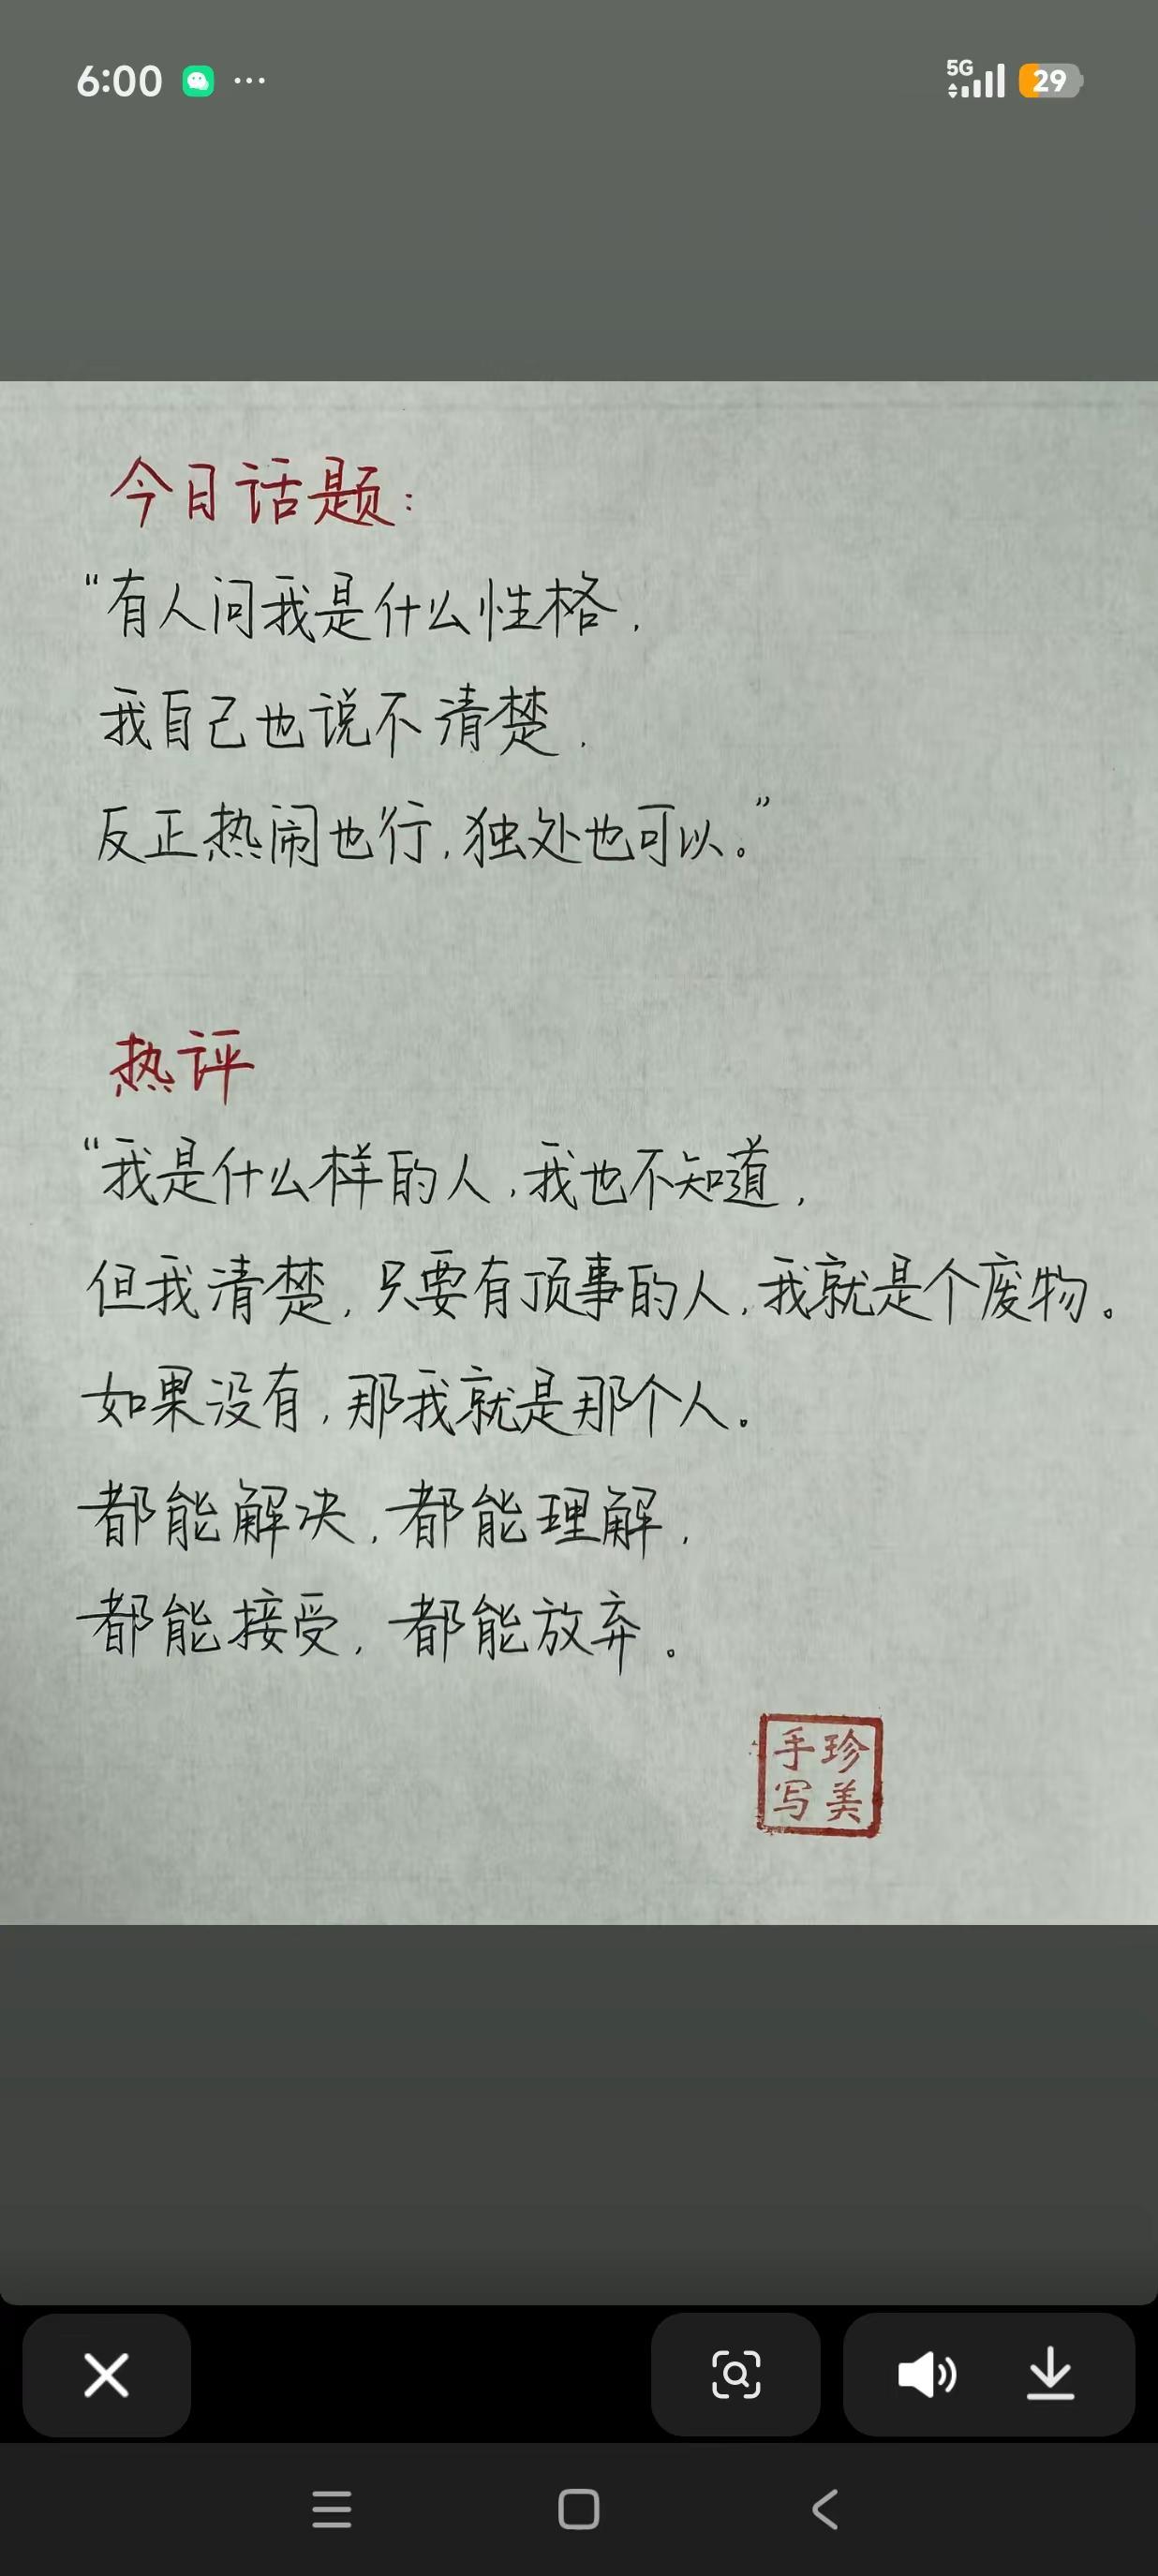 6:00 ···
5G 29
今日话题：
“有人问我是什么性格，
我自己也说不清楚，
反正热闹也行，独处也可以。”
热评
“我是什么样的人，我也不知道，
但我清楚，只要有顶事的人，我就是个废物。
如果没有，那我就是那个人。
都能解决，都能理解，
都能接受，都能放弃。
手珍
写美